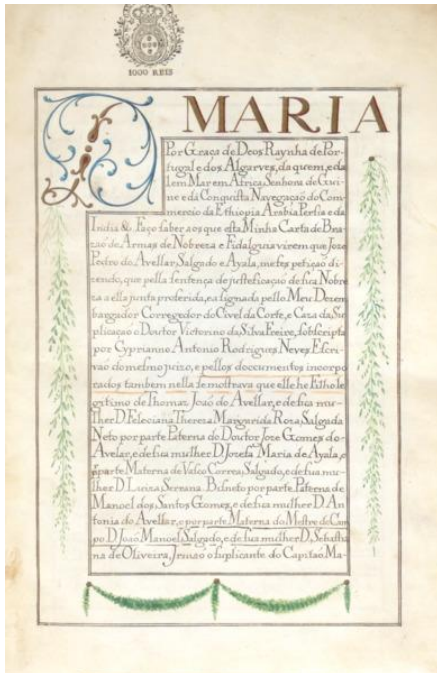 1000 REIS
D. MARIA
Por Graça de Deos Raynha de Por-
tugal e dos Algarves, daquem, e da
lem Mar em Africa Senhora de Gui-
ne e da Conquista Navegação do Com-
mercio da Ethiopia Arabia Persia e da
India &. Faço saber aos que esta Minha Carta de Bra-
zaõ de Armas de Nobreza e Fidalguia virem que Joze
Pedro do Avellar Salgado e Ayala, me fes petição di-
zendo, que pella Sentença de justeficação de sua Nobre
za a ella junta proferida, e asignada pello Meu Dezem
bargador Corregedor do Civel da Corte, e Caza da Su
plicação o Doutor Victorino da Silva Freire, sobscripta
por Cyprianno Antonio Rodrigues Neves Escri-
vaõ do mesmo juizo, e pellos documentos incorpo
rados tambem nella se mostrava que elle he Filho le
gitimo de Thomaz João do Avellar, e de sua mu-
lher D. Feleciana Thereza Margarida Roza, Salgada
Neto por parte Paterna do Doutor Joze Gomes do
Avelar, e de sua mulher D. Jozefa Maria de Ayala, e
parte Materna de Valco Correa, Salgado, e de sua mu-
lher D. Luiza Serrana Bisneto por parte Paterna de
Manoel dos Santos Gomes, e de sua mulher D. An-
tonia do Avellar, e por parte Materna do Mestre de Cam
po D. João Manoel Salgado, e de sua mulher D. Sebastia
na de Oliveira, Irmaõ o suplicante do Capitaõ Ma-